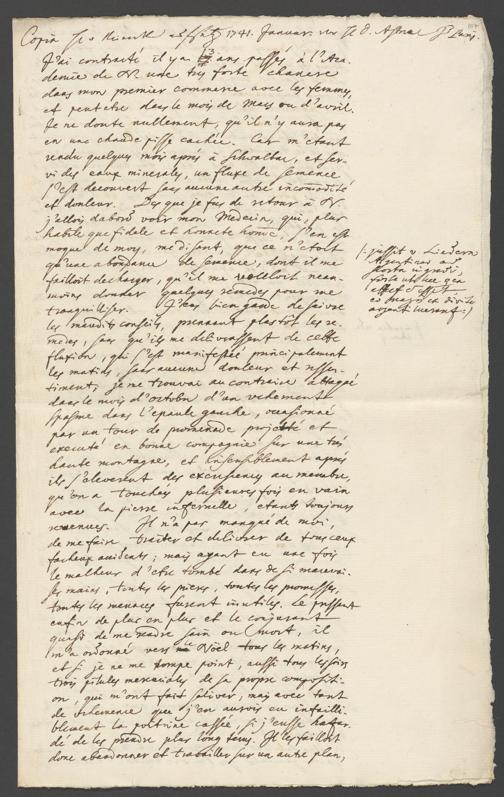 Copia 1741. Januar. Astruc Paris.
J'ai contracté il y a 3 ans passés, à l'Aca-
demie de N. une tres forte chancre
dans mon premier commerce avec les femmes,
et peut etre dans le mois de Mars ou d'avril.
Je ne doute nullement, qu'il n'y aura pas
eu une chaude pisse cachée. Car m'etant
rendu quelques mois après à Schwalbac, et ser-
vi des eaux minerales, un fluxe de semence
s'est decouvert sans aucune autre incommodité
et douleur. Des que je fus de retour à N.
j'allois dabord voir mon Medecin, qui, plus
habile que fidele et honnete homme, s'en est
moqué de moy, me disant, que ce n'etoit
qu'une abondance de semence, dont il me
failloit decharger, qu'il me voulloit nean-
moins donner quelques remedes pour me
tranquilliser. J'eus bien garde de suivre
les maudits conseils, prennant plustôt les re-
medes, sans qu'ils me delivrassent de cette
fluxion, qui s'est manifestée principalement
les matins, sans aucune douleur et ressen-
timent; je me trouvai au contraire attaqué
dans le mois d'octobre d'un vehement
spasme dans l'epaule gauche, ocasionné
par un tour de promenade projetté et
executé en bonne compagnie sur une tres
haute montagne, et insensiblement après
ils s'eleverent des excresences au membre,
qu'on a touchées plusieures fois en vain
avec la pierre infernelle, etants toujours
revenues. Il n'a pas manqué de moi,
de me faire traiter et delivrer de tous ceux
facheux accidents; mais ayant eu une fois
le malheur d'etre tombé dans de si mauvai-
ses mains, toutes les prieres, toutes les promesses,
toutes les menaces furent inutiles. Le pressant
enfin de plus en plus et le conjurant
quasi de me rendre sain ou mort, il
m'a ordonné vers le Noël tous les matins,
et si je ne me trompe point, aussi tous les soirs
trois pilules mercuriales de sa propre compositi-
on, qui m'ont fait saliver, mais avec tant
de vehemence que j'en aurois eu infailli-
blement la poitrine cassée, si j'eusse hazar-
dé de les prendre plus long tems. Il les failloit
donc abandonner et travailler sur un autre plan,